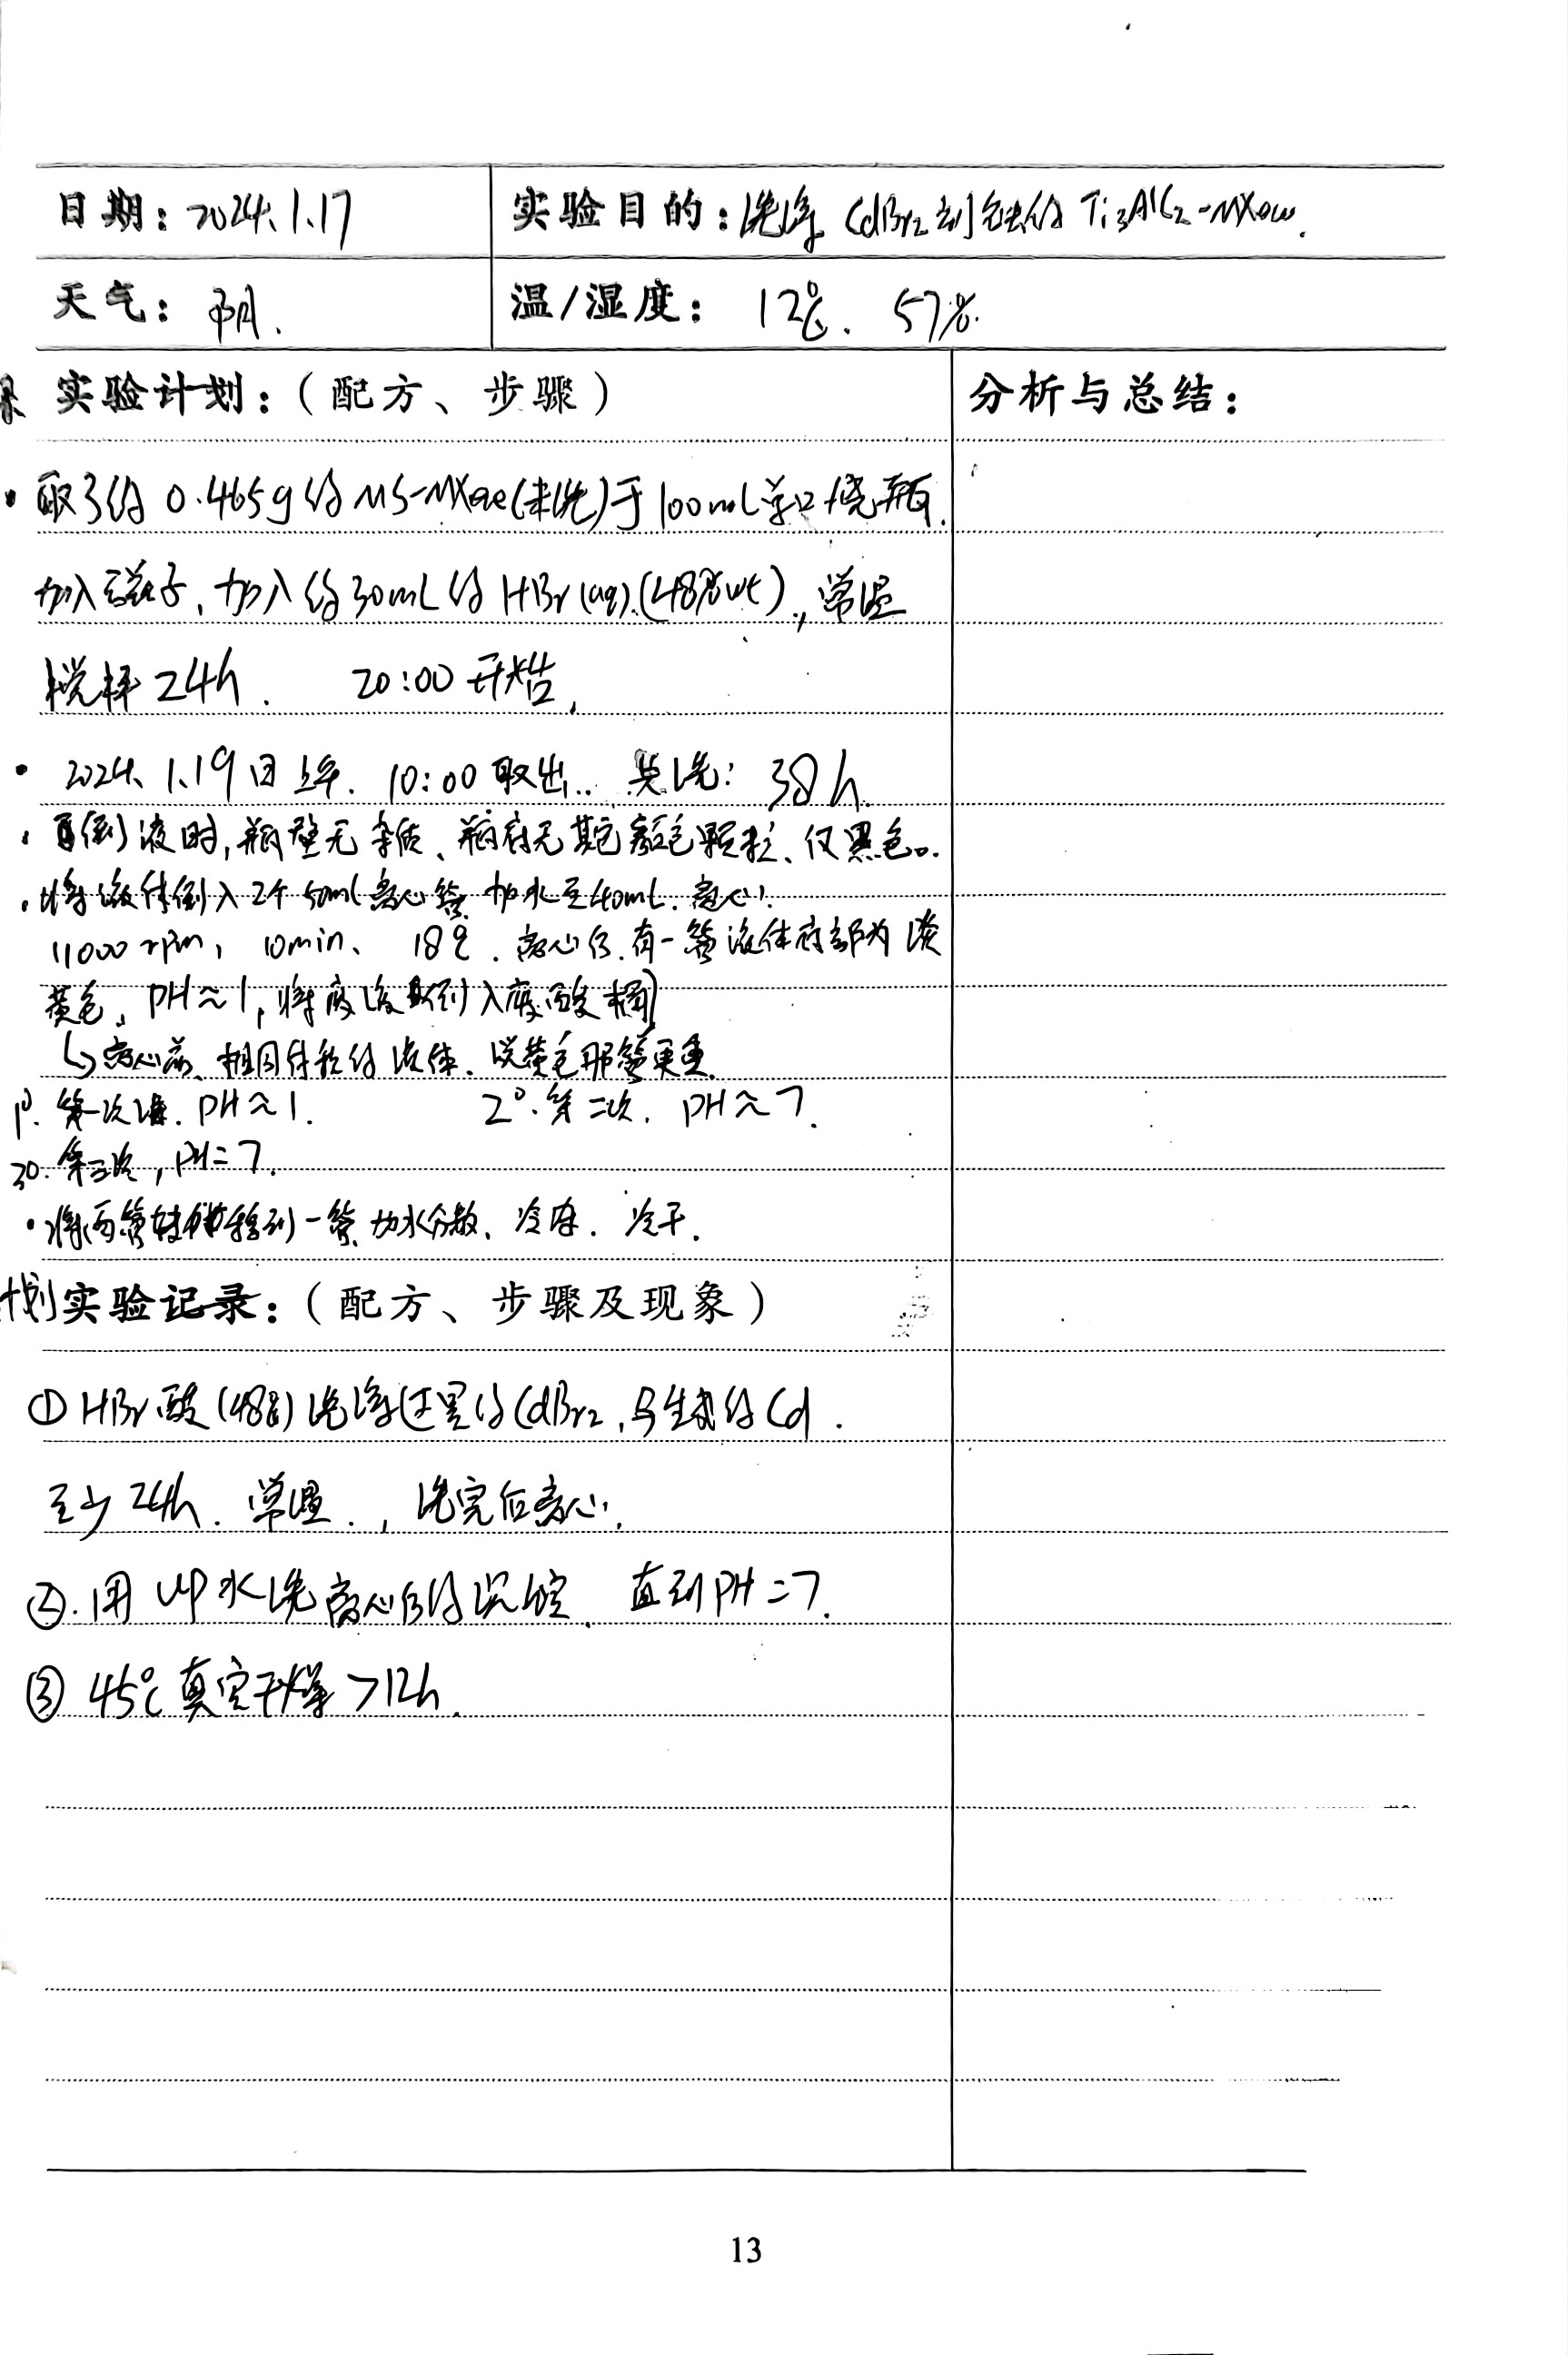 日期：2024.1.17
实验目的：洗净 CdBr2 刻蚀的 Ti3AlC2-MXene.
天气：阴.
温/湿度： 12℃. 57%.
录 实验计划：（配方、步骤）
分析与总结：
· 取了约 0.465g 的 MS-MXene(未洗)于 100mL 单口烧瓶.
加入磁子, 加入约 30mL 的 HBr (aq).(48%wt)., 常温
搅拌 24h. 20:00 开始.
· 2024. 1.19日 上午. 10:00 取出.. 共洗: 38 h.
· 倒液时, 瓶壁无杂质、瓶底无其它颜色颗粒、仅黑色.
· 将液体倒入 2个 50ml 离心管 加水至40mL. 离心!
11000 rpm, 10min、 18℃. 离心后. 有一管液体底部为淡
黄色, PH≈1, 将废液倒入废酸桶
↳ 离心前、相同体积的液体. 淡黄色那管更重.
1°. 第一次. PH≈1. 2°. 第二次. PH≈7.
3°. 第三次, PH=7.
· 将两管转移到一管. 加水分散、冷冻. 冷干.
计划 实验记录：（配方、步骤及现象）
① HBr 酸 (48%) 洗净过量的 CdBr2, 与生成的 Cd.
至少 24h. 常温., 洗完后离心.
②. 用 UP 水洗离心后的沉淀. 直到 PH=7.
③ 45℃ 真空干燥 >12h.
13